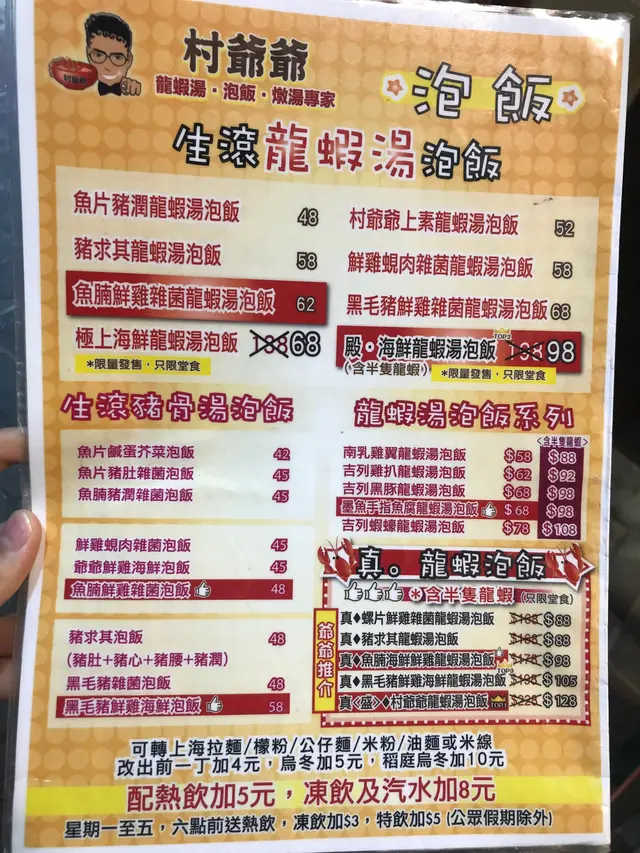 村爺爺
龍蝦湯・泡飯・燉湯專家
泡飯
生滾龍蝦湯泡飯
魚片豬潤龍蝦湯泡飯 48
豬求其龍蝦湯泡飯 58
魚腩鮮雞雜菌龍蝦湯泡飯 62
極上海鮮龍蝦湯泡飯 188 68
*限量發售，只限堂食
村爺爺上素龍蝦湯泡飯 52
鮮雞蜆肉雜菌龍蝦湯泡飯 58
黑毛豬鮮雞雜菌龍蝦湯泡飯 68
TOP2
殿・海鮮龍蝦湯泡飯 188 98
(含半隻龍蝦) *限量發售，只限堂食
生滾豬骨湯泡飯
魚片鹹蛋芥菜泡飯 42
魚片豬肚雜菌泡飯 45
魚腩豬潤雜菌泡飯 45
鮮雞蜆肉雜菌泡飯 45
爺爺鮮雞海鮮泡飯 45
魚腩鮮雞雜菌泡飯 48
豬求其泡飯 48
(豬肚+豬心+豬腰+豬潤)
黑毛豬雜菌泡飯 48
黑毛豬鮮雞海鮮泡飯 58
龍蝦湯泡飯系列
<含半隻龍蝦>
南乳雞翼龍蝦湯泡飯 $58 $88
吉列雞扒龍蝦湯泡飯 $62 $92
吉列黑豚龍蝦湯泡飯 $68 $98
墨魚手指魚腐龍蝦湯泡飯 $68 $98
吉列蝦蠔龍蝦湯泡飯 $78 $108
真。龍蝦泡飯
*含半隻龍蝦 (只限堂食)
爺爺推介
真♦螺片鮮雞雜菌龍蝦湯泡飯 $88
真♦豬求其龍蝦湯泡飯 $88
真♦魚腩海鮮鮮雞龍蝦湯泡飯 $98
TOP3
真♦黑毛豬鮮雞海鮮龍蝦湯泡飯 $105
真<盛>♦村爺爺龍蝦湯泡飯 TOP1 $228 $128
可轉上海拉麵/檬粉/公仔麵/米粉/油麵或米線
改出前一丁加4元，烏冬加5元，稻庭烏冬加10元
配熱飲加5元，凍飲及汽水加8元
星期一至五，六點前送熱飲，凍飲加$3，特飲加$5 (公眾假期除外)